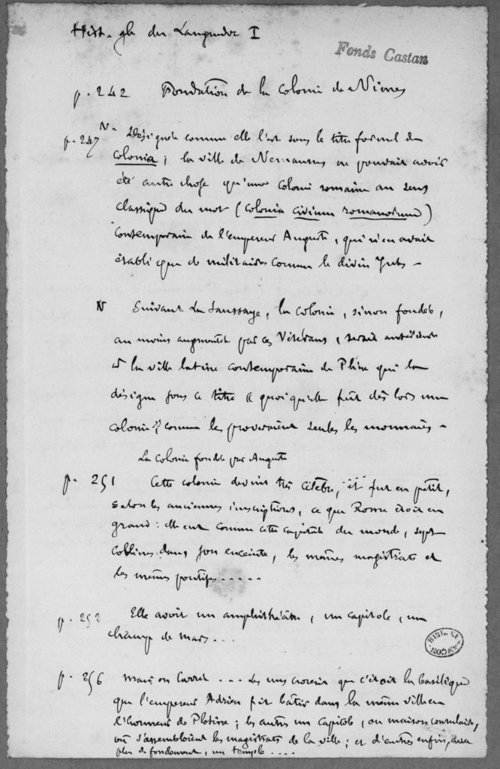 Hist. gle du Languedoc I
Fonds Castan
p. 242 Fondation de la colonie de Nîmes
p. 247 Nta Désignée comme elle l'est sous le titre formel de
colonia ; la ville de Nemausus ne pouvait avoir
été autre chose qu'une colonie romaine au sens
classique du mot (colonia civium romanorum)
contemporaine de l'empereur Auguste, qui n'en avait
établi que de militaires comme le divin Jules –
N Suivant La Saussaye, la colonie, sinon fondée,
au moins augmentée par ces Vétérans, serait antérieure
à la ville latine contemporaine de Pline qui la
désigne sous ce titre quoiqu'elle fût dès lors une
colonie comme le prouveraient seules les monnaies –
La colonie fondée par Auguste
p. 251 Cette colonie devint très célèbre, et fut en petit,
selon les anciennes inscriptions, ce que Rome étoit en
grand : elle eut comme cette capitale du monde, sept
collines dans son enceinte, les mêmes magistrats et
les mêmes pontifes.....
p. 252 Elle avoit un amphithéâtre, un capitole, un
champ de mars...
p. 256 Maison Carrée .... Les uns croient que c'étoit la basilique
que l'empereur Adrien fit bâtir dans la même ville en
l'honneur de Plotine ; les autres un capitole, ou maison consulaire,
où s'assembloient les magistrats de la ville ; et d'autres enfin, avec
plus de fondement, un temple ....